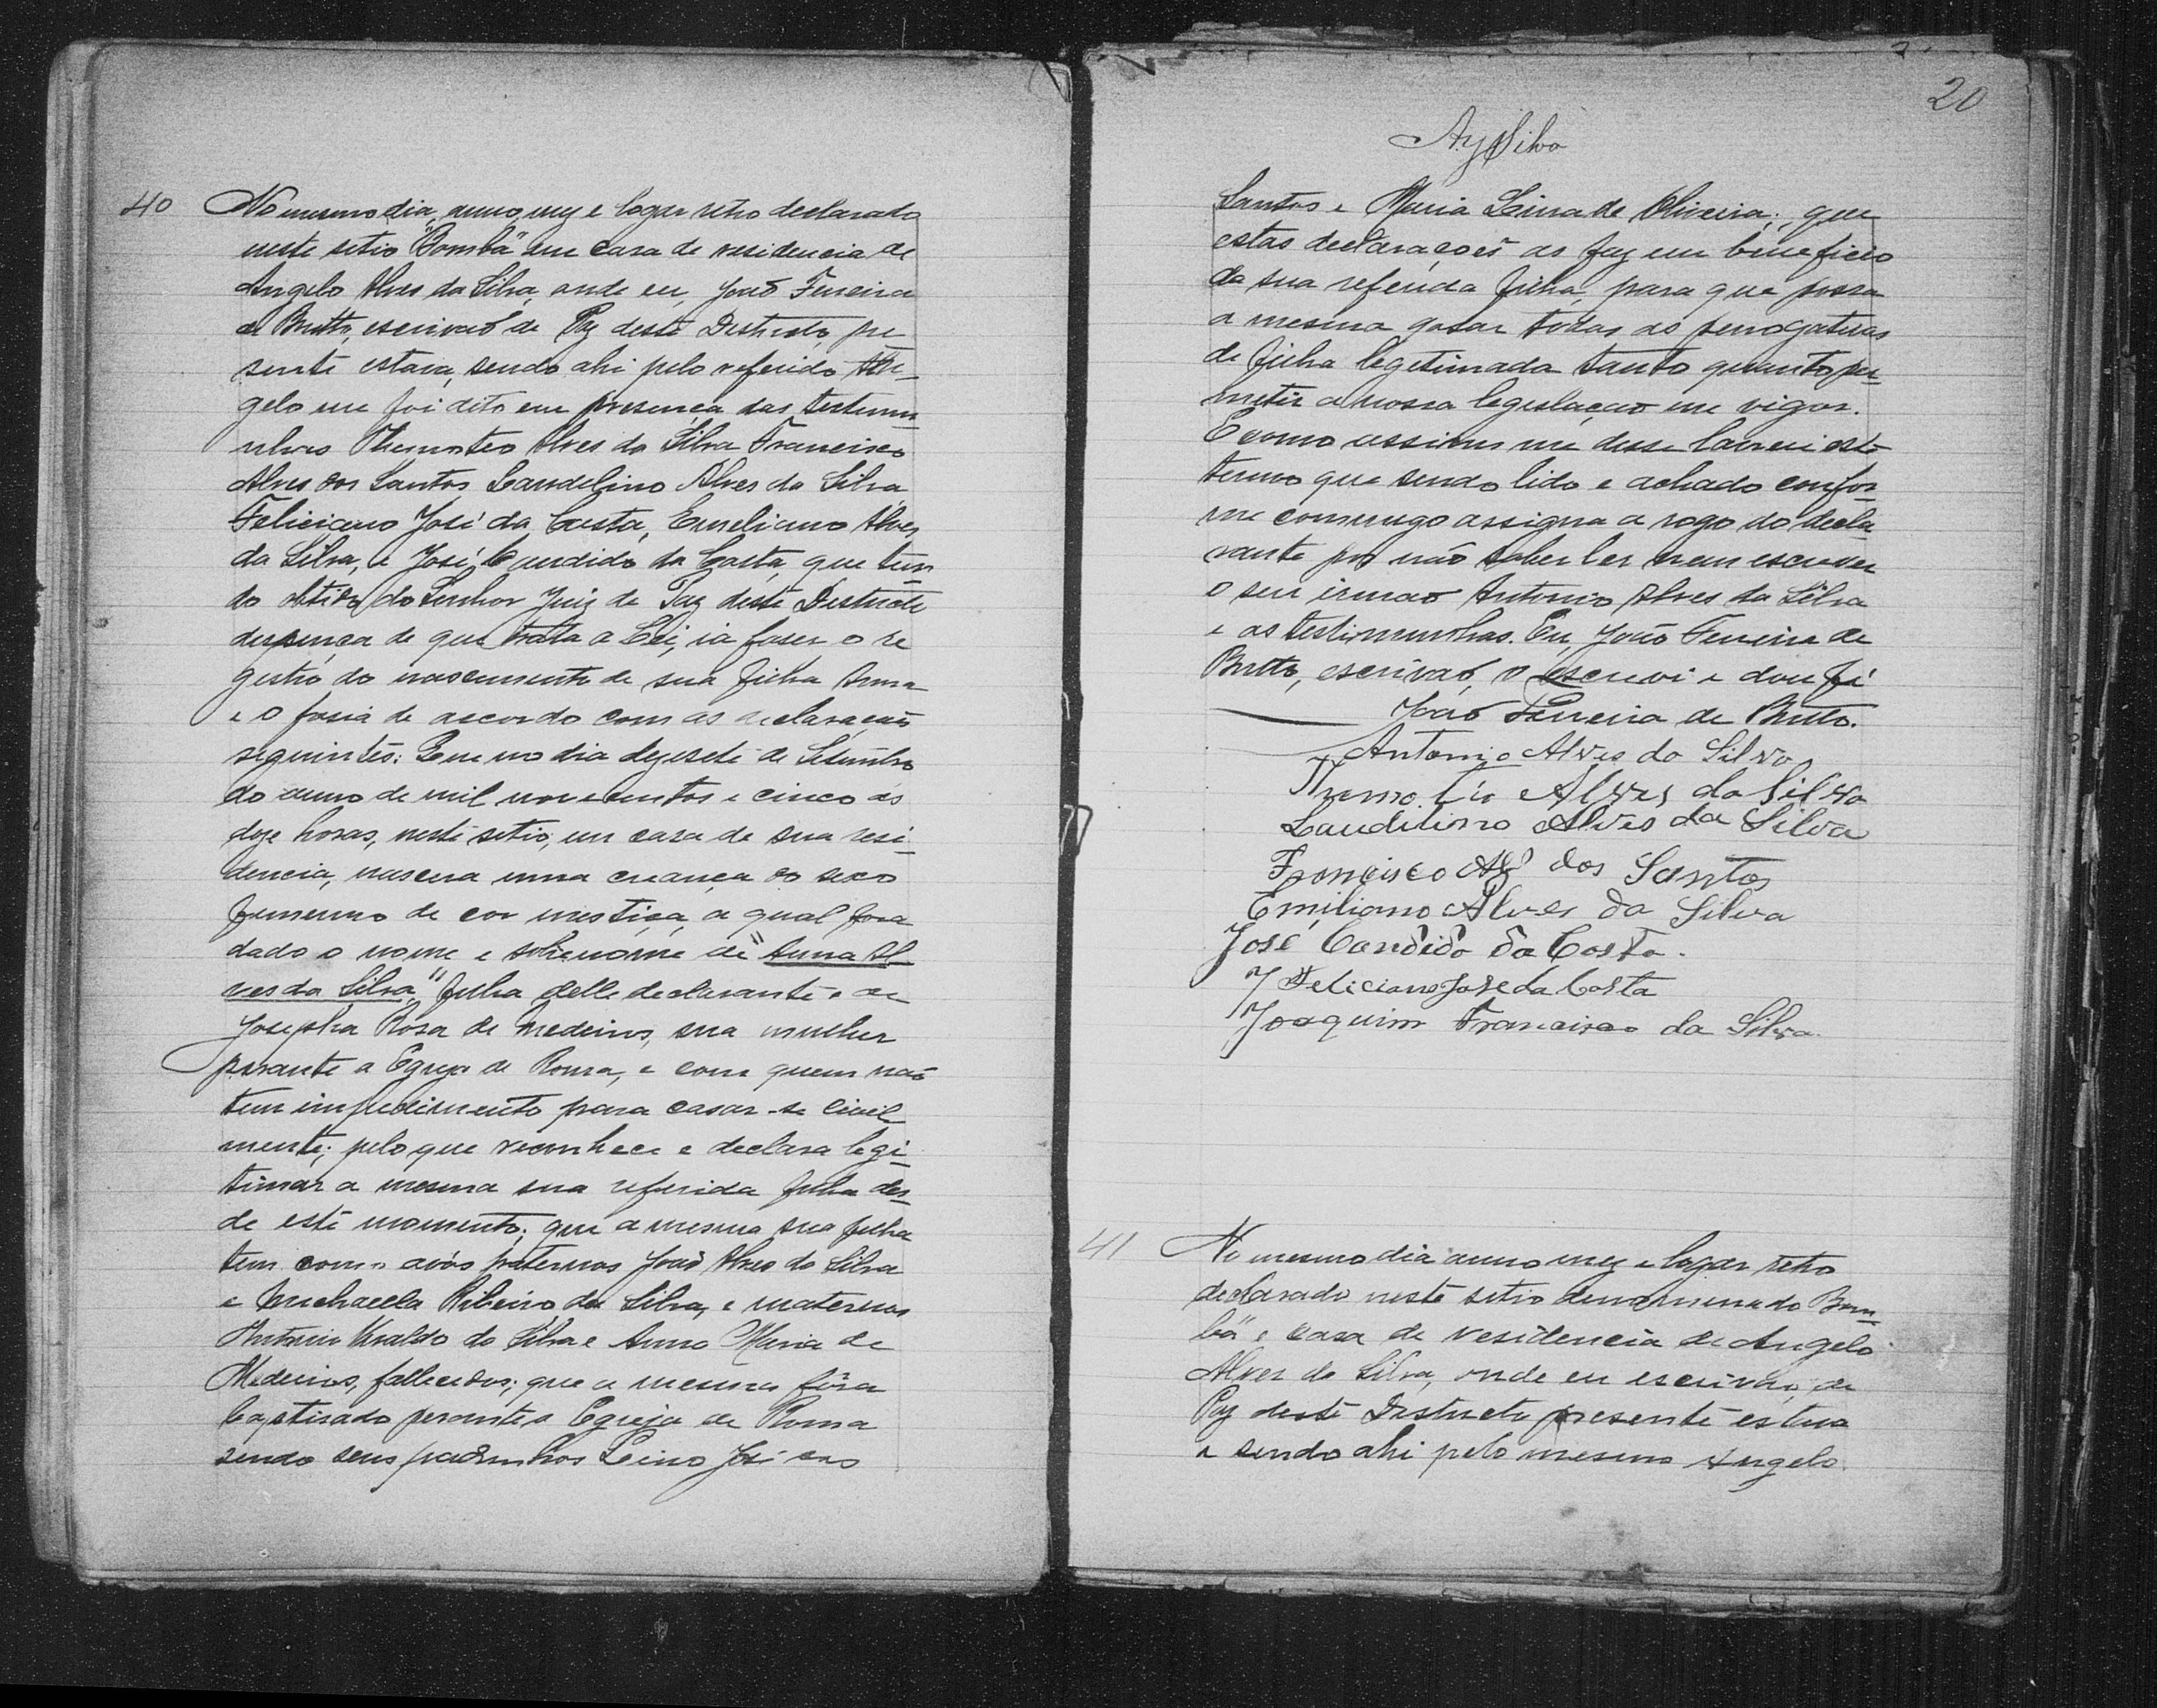 40 No mesmo dia, anno, mez e logar retro declarado
neste setio "Bomba" em casa de residencia de
Angelo Alves da Silva, onde eu João Ferreira
de Britto, escrivaõ de Paz deste Destricto, pre
sente estava, sendo ahi pelo referido An-
gelo me foi dito em presença das testemu-
nhas Themoteo Alves da Silva Francisco
Alves dos Santos Laudelino Alves da Silva
Feliciano José da Costa, Emeliano Alves
da Silva, e José Candido da Costa, que ten-
do obtido do Senhor Juiz de Paz deste Destricto
despença de que trata a Lei, ia faser o re
gestro do nascimento de sua filha Anna
e o fasia de accordo com as declarações
seguintes: Que no dia dezesete de Setembro
do anno de mil novecentos e cinco as
doze horas, neste setio, em casa de sua resi-
dencia, nascera uma creança do sexo
femenino de cor mestiça, a qual fora
dado o nome e sobrenome de "Anna Al-
ves da Silva," filha delle declarante e de
Josepha Rosa de Medeiros, sua mulher
perante a Egreja de Roma, e com quem naõ
tem impedimento para casar-se civil
mente; pelo que reconhece e declara legi-
timar a mesma sua referida filha des-
de este momento; que a mesma sua filha
tem como avós paternos João Alves da Silva
e Michaella Ribeiro da Silva, e maternos
Antonio da Silva e Anna Maria de
Medeiros, fallecidos; que a mesma fôra
baptisada perante a Egreja de Roma
sendo seus padrinhos Lino José dos
20
AySilva
Santos e Maria Lina de Oliveira; que
estas declaraçoes as faz em beneficio
da sua referida filha, para que possa
a mesma gosar todas as perrogativas
de filha legetimada tanto quanto per-
metir a nossa legislação em vigor.
E como assim me disse lavrei este
termo que sendo lido e achado confor-
me commigo assigna a rogo do decla
rante por não saber ler nem escrever
o seu irmao Antonio Alves da Silva
e as testimunhas. Eu, João Ferreira de
Britto, escrivaõ, o escrevi e dou fé
João Ferreira de Britto.
Antonio Alves da Silva
Themotio Alves da Silva
Laudilino Alves da Silva
Francisco Alz dos Santos
Emiliano Alves da Silva
José Candido da Costa.
Feliciano Jose da Costa
Joaquim Francisco da Silva.
41 No mesmo dia anno mez e logar retro
declarado neste setio denominado Bom-
ba" e casa de residencia de Angelo
Alves da Silva, onde eu escrivão de
Paz deste Destricto presente estava
e sendo ahi pelo mesmo Angelo.